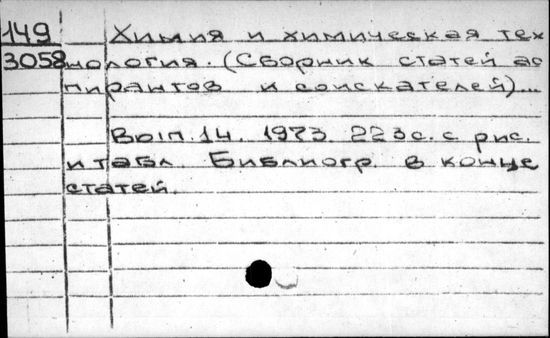 149 Химия и химическая тех
3058 нология. (Сборник статей ас
пирантов и соискателей)...
Вып. 14. 1973. 223с. с рис.
и табл. Библиогр. в конце
статей.